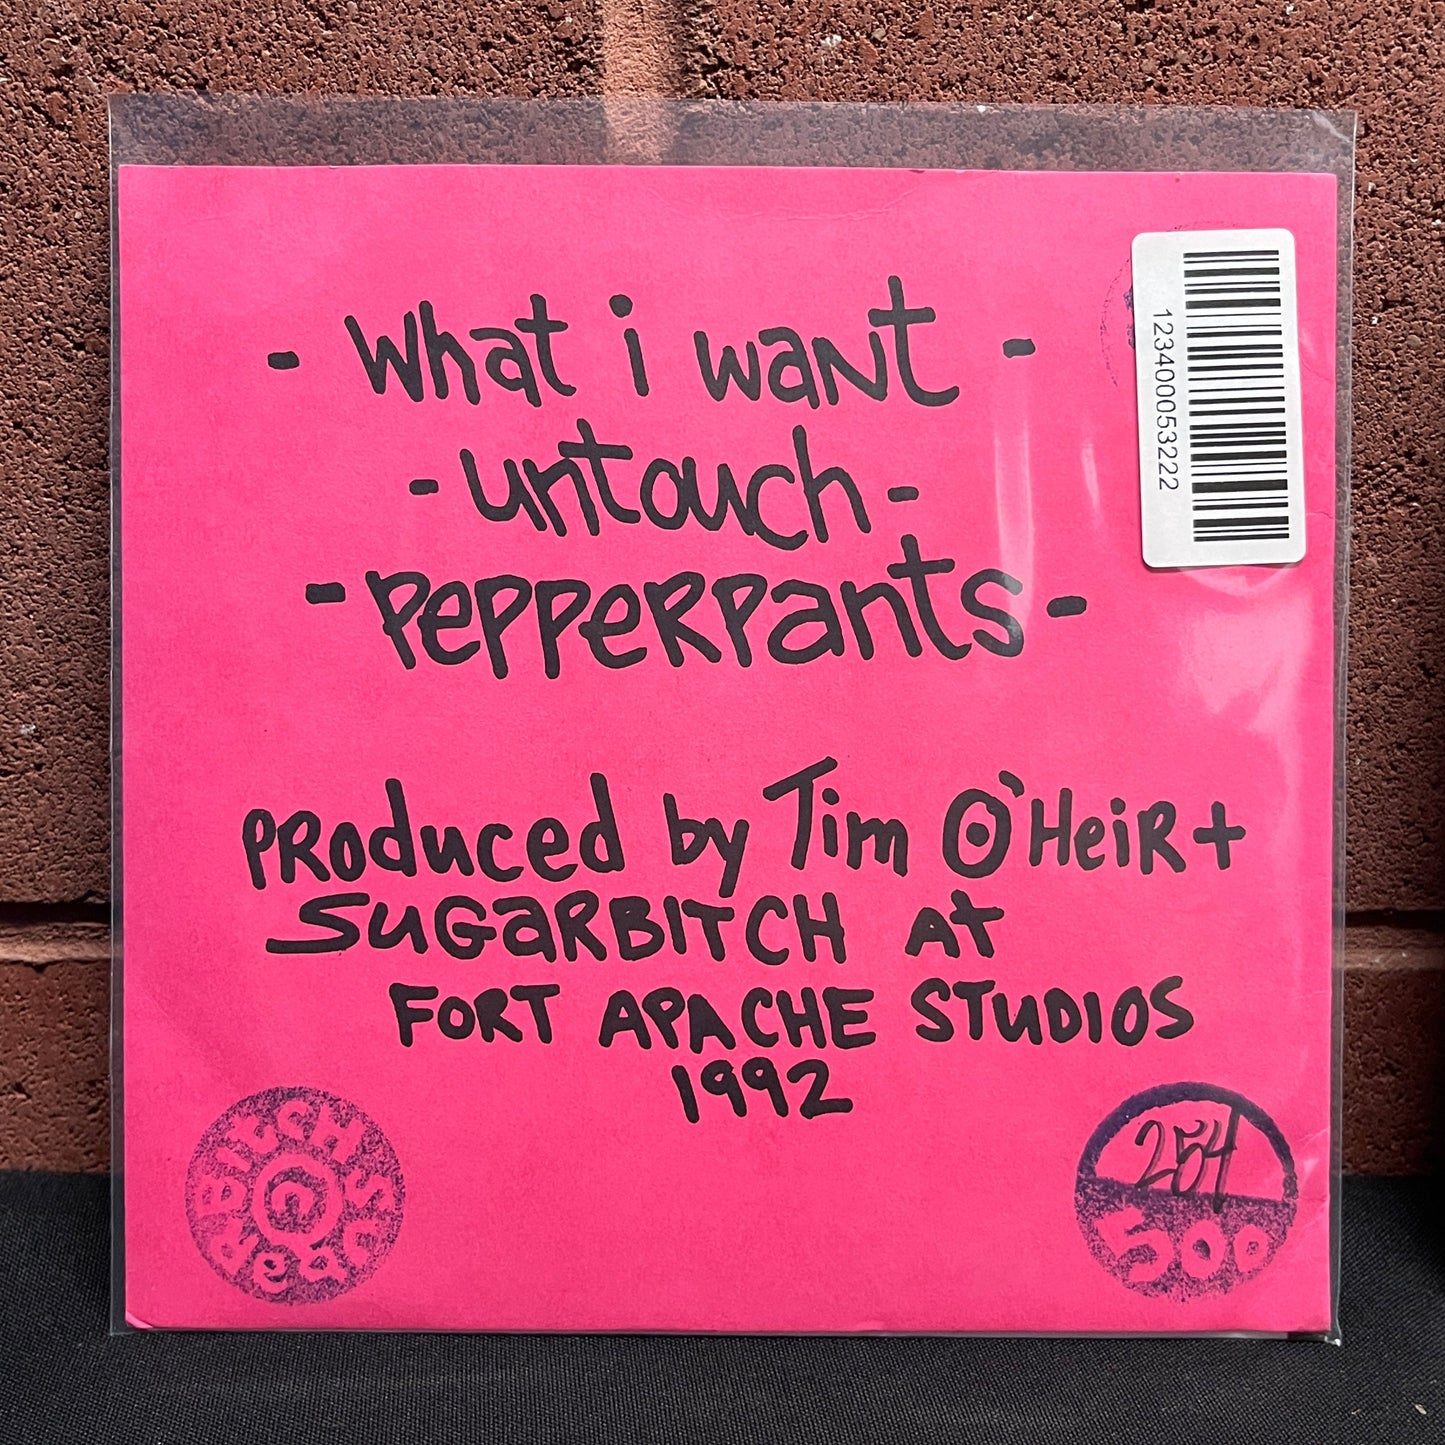 - What i want -
- untouch -
- pepperpants -
123400053222
produced by Tim O'Heir +
SUGaRBITCH at
FORT APACHE STUDIOS
1992
254
500